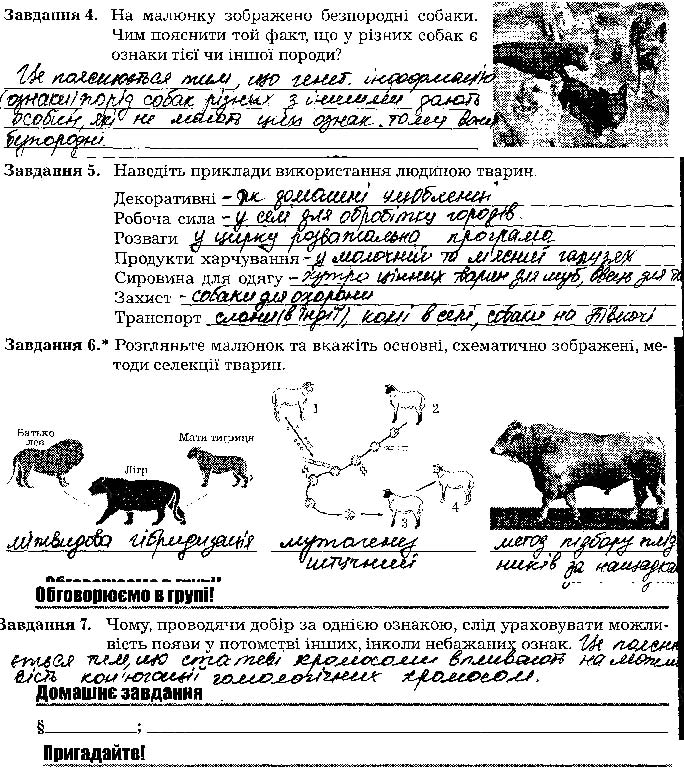 Завдання 4. На малюнку зображено безпородні собаки.
Чим пояснити той факт, що у різних собак є
ознаки тієї чи іншої породи?
Це пояснюється тим, що генет. інформацію
(ознаки) порід собак різних з іншими дають
особин, які не мають цих ознак. Тому вони
безпородні.
Завдання 5. Наведіть приклади використання людиною тварин.
Декоративні – як домашні улюбленці
Робоча сила – у селі для обробітку городів.
Розваги у цирку розважальна програма
Продукти харчування – у молочній та м'ясній галузях
Сировина для одягу – хутро цінних тварин для шуб, овець для
Захист – собаки для охорони
Транспорт слони (в Індії), коні в селі, собаки на Півночі
Завдання 6.* Розгляньте малюнок та вкажіть основні, схематично зображені, ме-
тоди селекції тварин.
1 2
Батько
лев
Мати тигриця
Лігр
3 4
міжвидова гібридизація мутагенез метод підбору плід
штучний ників за нащадка
Обговорюємо в групі!
Завдання 7. Чому, проводячи добір за однією ознакою, слід ураховувати можли-
вість появи у потомстві інших, інколи небажаних ознак. Це поясн
ється тим, що статеві хромосоми впливають на можли
вість кон'югації гомологічних хромосом.
Домашнє завдання
§ ;
Пригадайте!